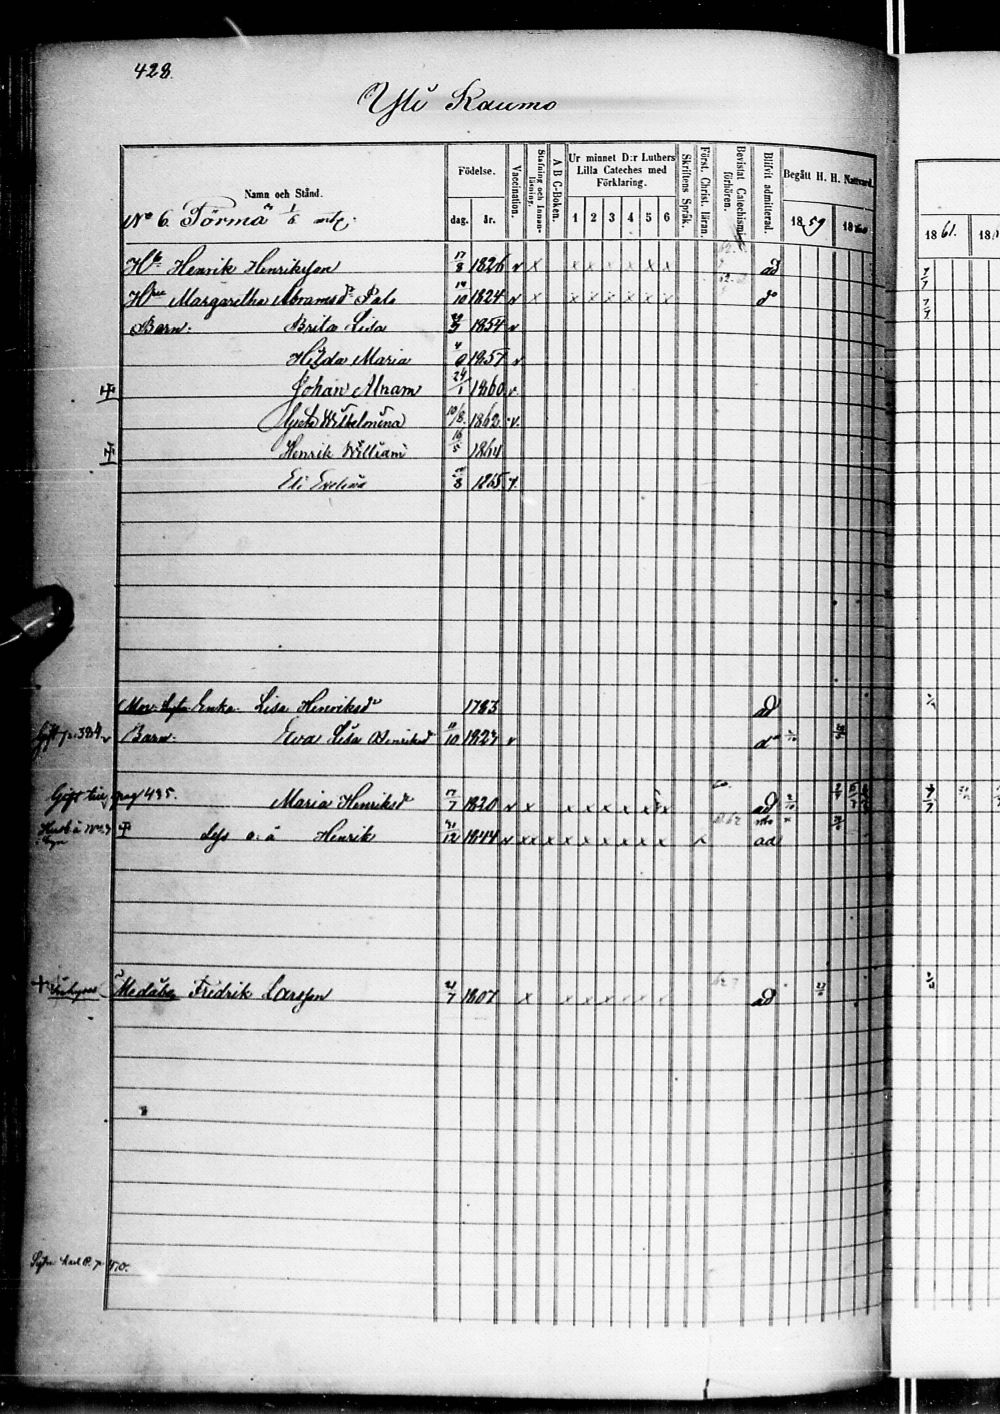 428.
Yli Kaumo
Namn och Stånd.
Födelse.
dag.
år.
Vaccination.
Stafning och Innan-
läsning.
A B C-Boken.
Ur minnet D:r Luthers
Lilla Cateches med
Förklaring.
1 2 3 4 5 6
Skriftens Språk.
Först. Christ. läran.
Bevistat Catechismi-
förhören.
Blifvit admitterad.
Begått H. H. Nattvard.
1859
1860
1861.
No 6. Törmä 1/6 mtl.
Hb Henrik Henriksson 17/8 1826 v x x x x x x x ad 7/7
Hru Margaretha Abramsdr Palo 10 1824 v x x x x x x x do 7/7
Barn: Brita Lisa 1854 v
Hilda Maria 1857 v
Johan Abram 24/1 1860 v
Greta Wilhelmina 10/8 1862 v
Henrik William 16/5 1864
Eli Evelina 8 1865 v.
Enka Lisa Henriksdr 1783 ad
Gift p. 384. Barn: Eva Lisa Henriksd 11/10 1823 v do
Gift till pag 435.
Maria Henriksdr 17/7 1820 v x x x x x x x ad
o. ä Henrik 12 1844 v x x x x x x x x x x ad
Inhyses
Fredrik Larsson 21/7 1807 x x x x x x x ad
Karl P. p. 470.